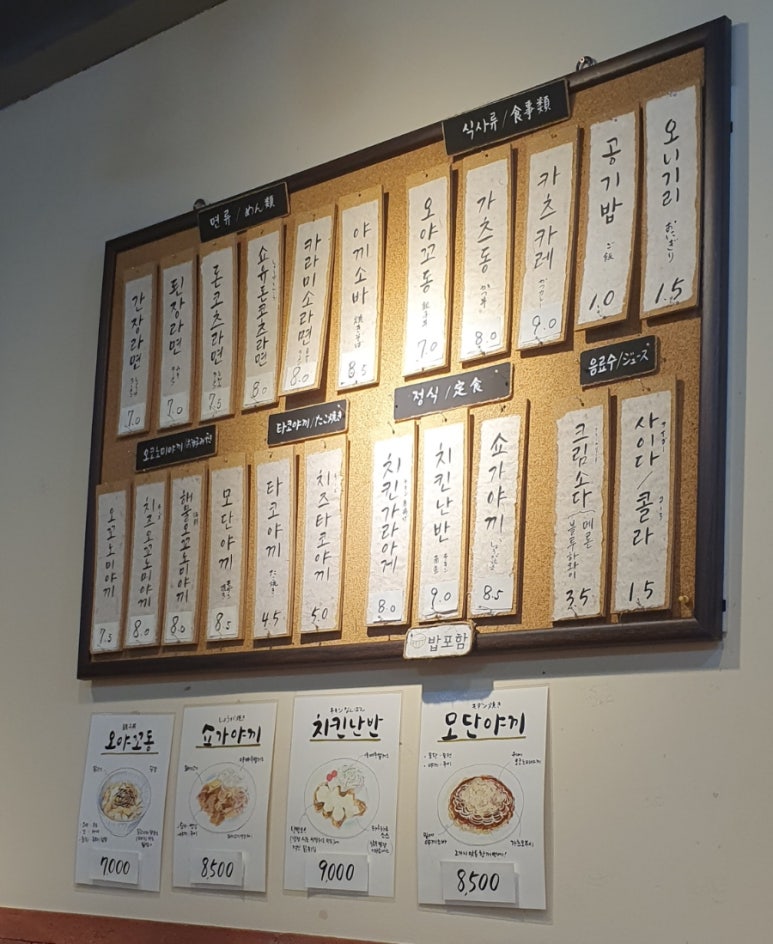 식사류/食事類
면류/めん類
간장라면
7.0
된장라면
7.0
돈코츠라면
7.5
쇼유돈코츠라면
8.0
카라미소라면
8.0
야끼소바
8.5
오야꼬동 親子丼
7.0
가츠동 かつ丼
8.0
카츠카레
9.0
공기밥 ご飯
1.0
오니기리 おにぎり
1.5
오코노미야끼/お好み焼き
타코야끼/たこ焼き
정식/定食
음료수/ジュース
오꼬노미야끼
7.5
치즈오꼬노미야끼
8.0
해물오꼬노미야끼
8.0
모단야끼
8.5
타코야끼 たこ焼き
4.5
치즈타코야끼
5.0
치킨가라아게
8.0
치킨난반
9.0
쇼가야끼
8.5
크림소다(메론
블루하와이
3.5
사이다/콜라
1.5
밥포함
親子丼
오야꼬동
7,000
しょうが焼き
쇼가야끼
8,500
チキンなんばん
치킨난반
9,000
モダン焼き
모단야끼
8,500